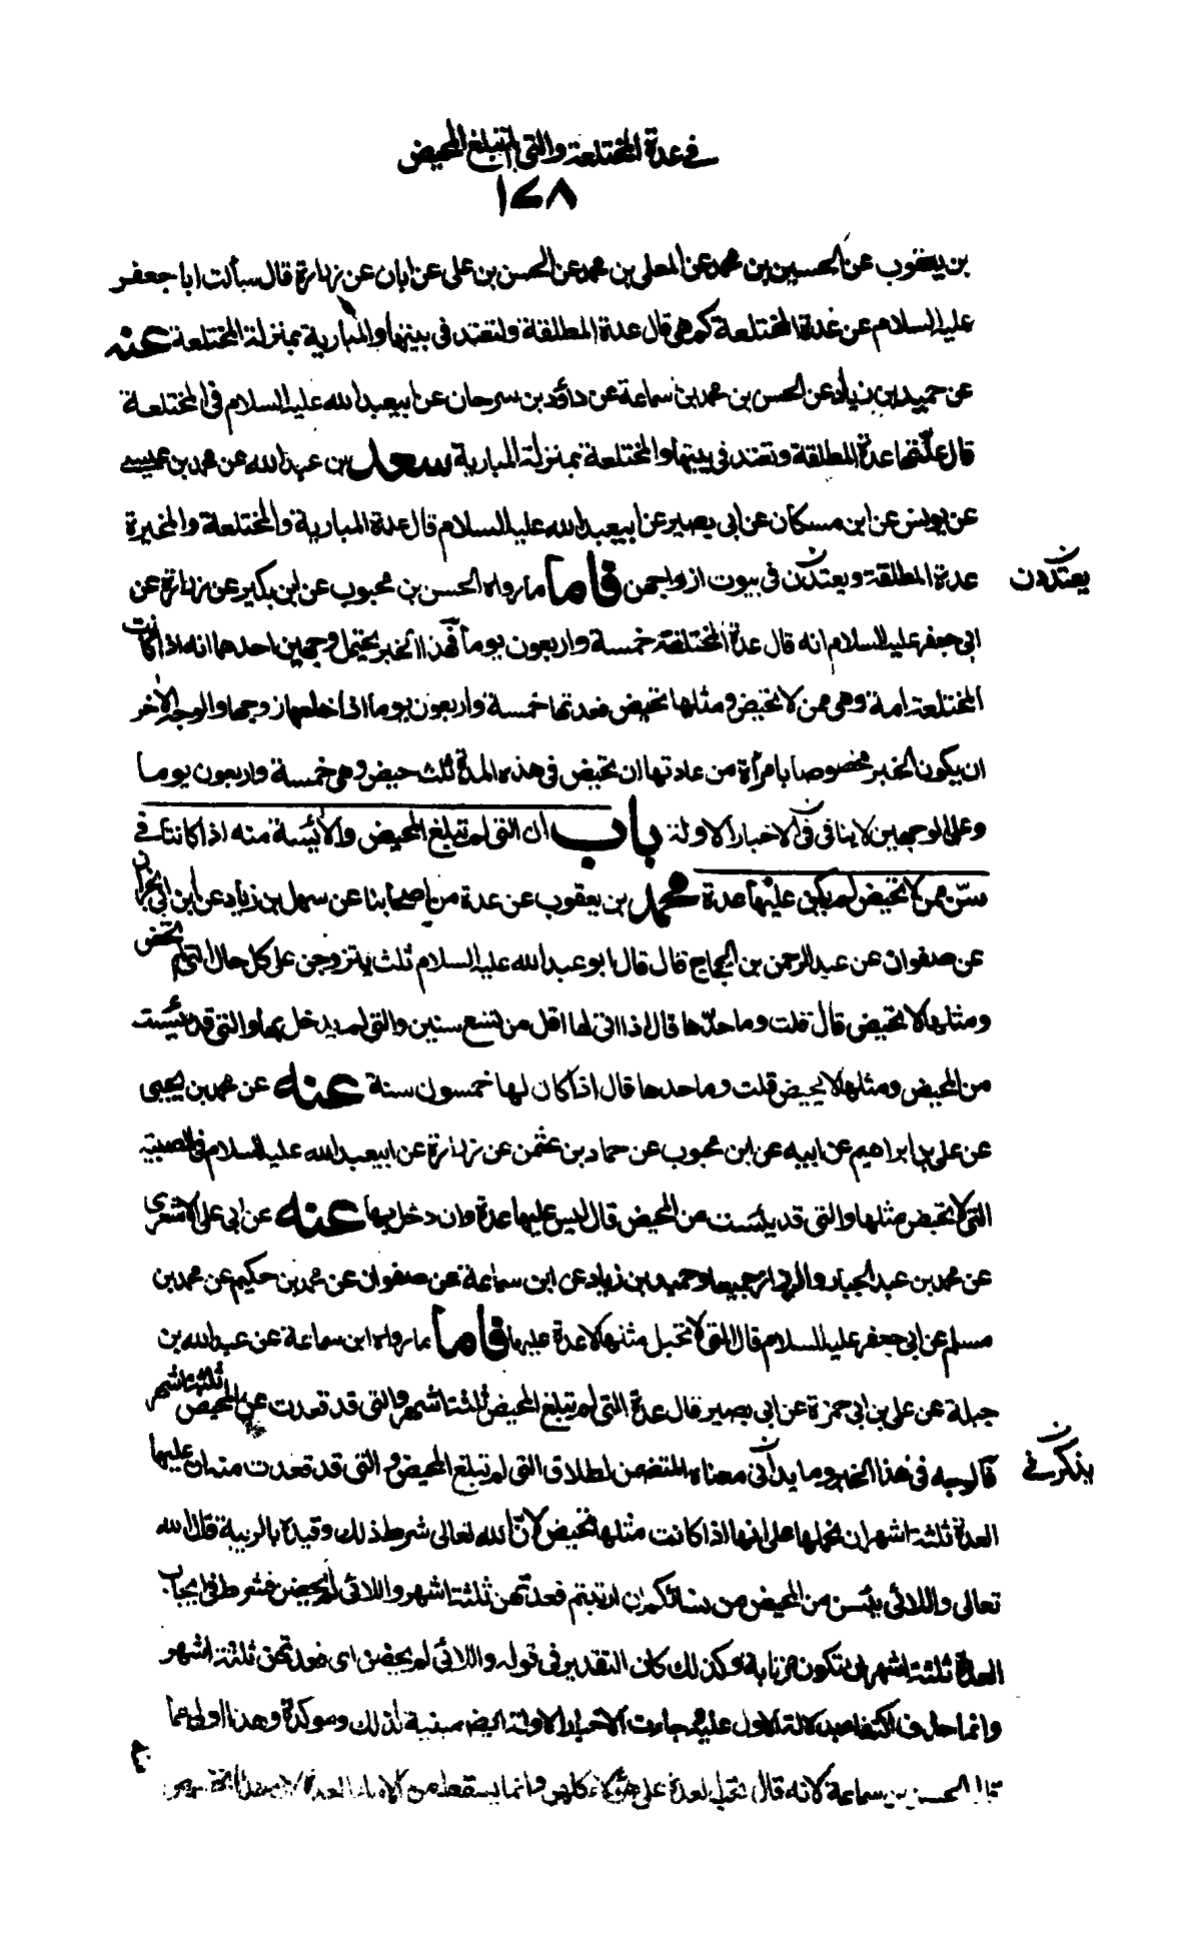 في عدة المختلعة والتي لم تبلغ المحيض
١٧٨
بن يعقوب عن الحسين بن محمد عن المعلى بن محمد عن الحسن بن علي عن ابان عن زرارة قال سألت ابا جعفر
عليه السلام عن عدة المختلعة كم هي قال عدة المطلقة ولتعتد في بيتها والمبارية بمنزلة المختلعة عنه
عن حميد بن زياد عن الحسن بن محمد بن سماعة عن داود بن سرحان عن ابيعبد الله عليه السلام في المختلعة
قال عدتها عدة المطلقة وتعتد في بيتها والمختلعة بمنزلة المبارية سعد بن عبد الله عن محمد بن عيسى
عن يونس عن ابن مسكان عن ابي بصير عن ابيعبد الله عليه السلام قال عدة المبارية والمختلعة والمخيرة
عدة المطلقة ويعتدن في بيوت ازواجهن فاما ما رواه الحسن بن محبوب عن ابن بكير عن زرارة عن
يعتددن ن
ابي جعفر عليه السلام انه قال عدة المختلعة خمسة واربعون يوما فهذا الخبر يحتمل وجهين احدهما انه اذا كانت
المختلعة امة وهي ممن لا تحيض ومثلها تحيض فعدتها خمسة واربعون يوما اذا خلعها زوجها والوجه الآخر
ان يكون الخبر مخصوصا بامرأة من عادتها ان تحيض في هذه المدة ثلث حيض وهي خمسة واربعون يوما
وعلى الوجهين لا ينافي الاخبار الاولة باب ان التي لم تبلغ المحيض والآيسة منه اذا كانتا في
سن من لا تحيض لم يكن عليهما عدة محمد بن يعقوب عن عدة من اصحابنا عن سهل بن زياد عن ابن ابي نجران
عن صفوان عن عبد الرحمن بن الحجاج قال قال ابو عبد الله عليه السلام ثلث يتزوجن على كل حال التي لم تحض
ومثلها لا تحيض قال قلت وما حدها قال اذا اتى لها اقل من تسع سنين والتي لم يدخل بها والتي قد يئست
من المحيض ومثلها لا يحيض قلت وما حدها قال اذا كان لها خمسون سنة عنه عن محمد بن يحيى
عن علي بن ابراهيم عن ابيه عن ابن محبوب عن حماد بن عثمن عن زرارة عن ابيعبد الله عليه السلام في الصبية
التي لا تحيض مثلها والتي قد يئست من المحيض قال ليس عليهما عدة وان دخل بهما عنه عن ابي علي الاشعري
عن محمد بن عبد الجبار والرزاز جميعا وحميد بن زياد عن ابن سماعة عن صفوان عن محمد بن حكيم عن محمد بن
مسلم عن ابي جعفر عليه السلام قال التي لا تحبل مثلها لا عدة عليها فاما ما رواه ابن سماعة عن عبد الله بن
جبلة عن علي بن ابي حمزة عن ابي بصير قال عدة التي لم تبلغ المحيض ثلثة اشهر والتي قد قعدت عن المحيض ثلثة اشهر
فالوجه في هذا الخبر وما يدل في معناه المتضمن لطلاق التي لم تبلغ المحيض والتي قد قعدت منه ان عليها
يذكر في ن
العدة ثلثة اشهر ان نحملها على انها اذا كانت مثلها تحيض لان الله تعالى شرط ذلك وقيده بالريبة قال الله
تعالى واللائي يئسن من المحيض من نسائكم ان ارتبتم فعدتهن ثلثة اشهر واللائي لم يحضن فشرط في ايجاب
العدة ثلثة اشهر ان تكون مرتابة وكذلك كان التقدير في قوله واللائي لم يحضن اي فعدتهن ثلثة اشهر
وانما حذف اكتفاء بدلالة الاول عليه جاءت الاخبار الاولة ايضا مبنية لذلك وموكدة وهذا اولى مما
قال الحسن بن سماعة لانه قال تجب العدة على هؤلاء كلهن وانما يسقط عن الاماء العدة